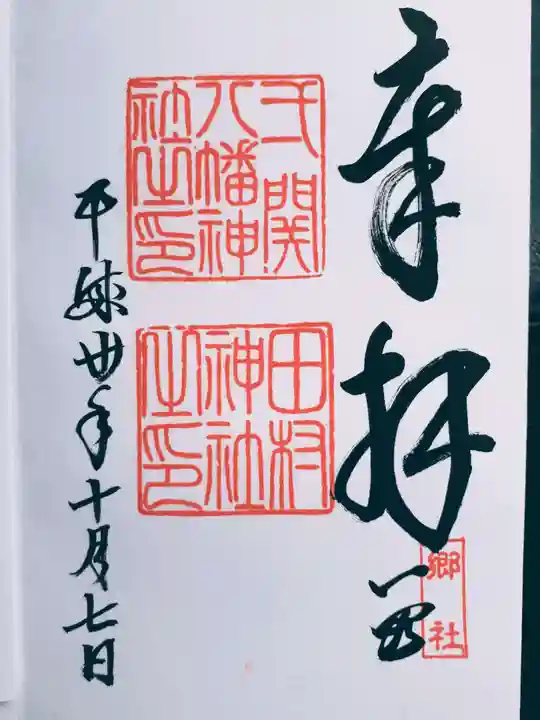 奉拝
一関
郷社
弌関
八幡神
社之印
田村
神社
之印
平成丗年十月七日